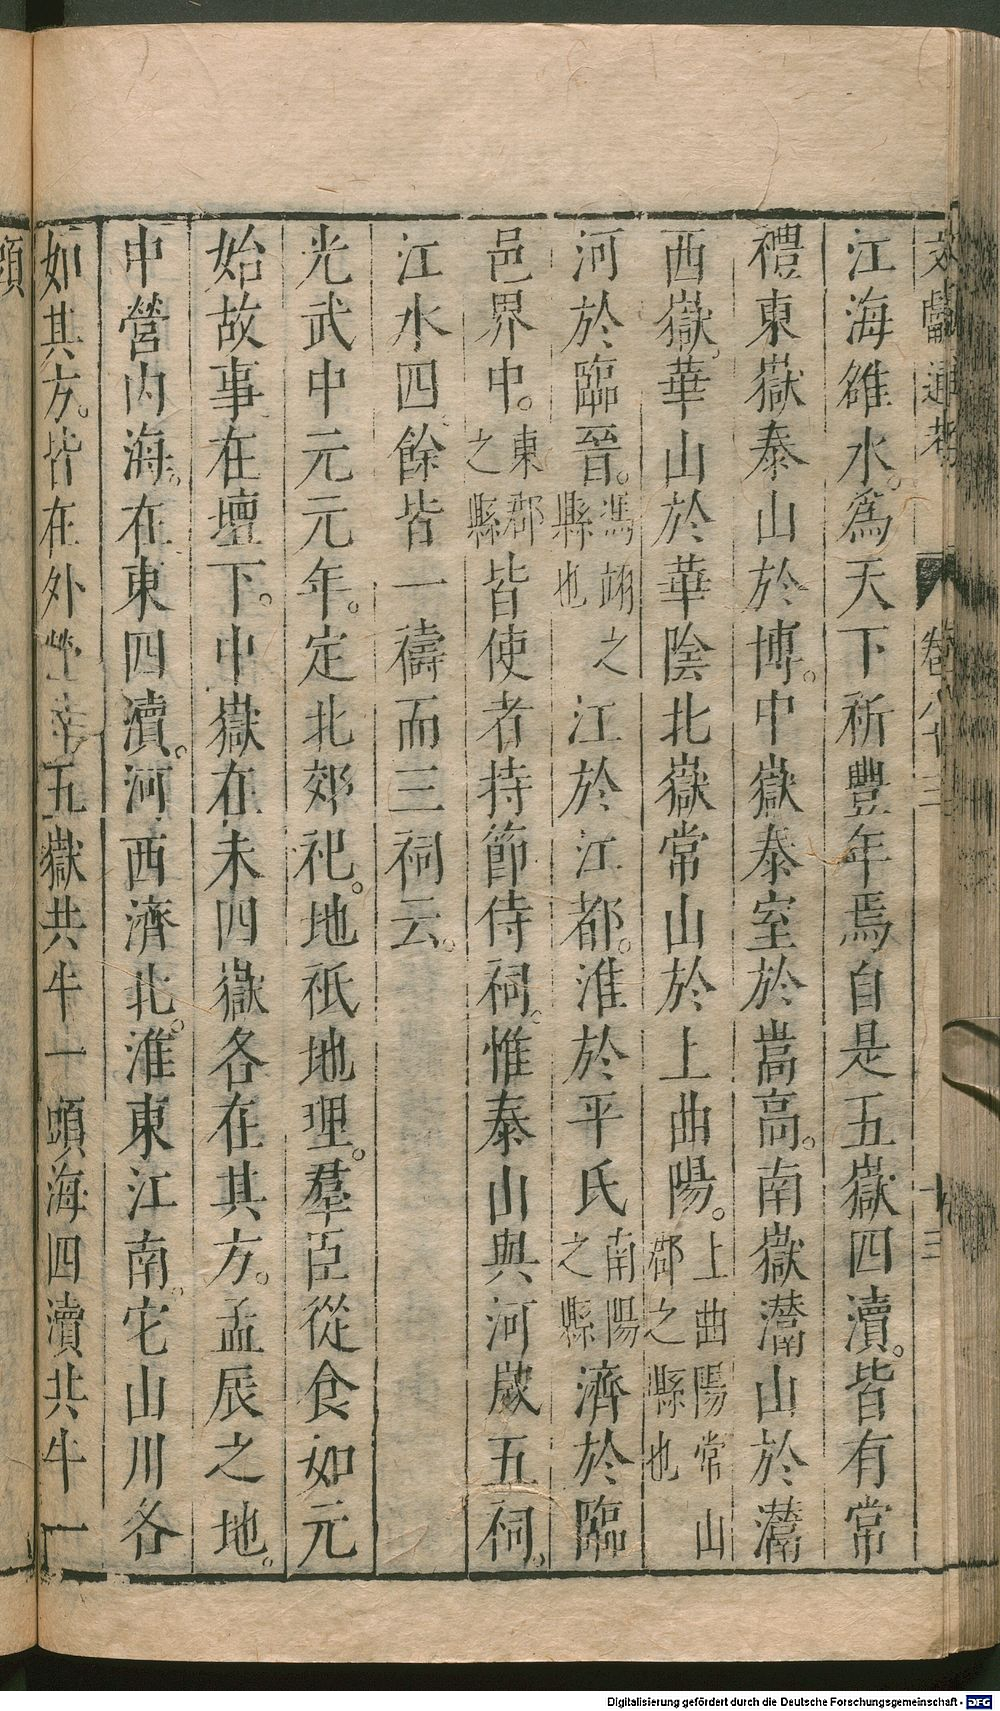 文獻通考　卷八十三　十三
江海雒水。爲天下祈豐年焉自是五嶽四瀆。皆有常
禮東嶽泰山於博。中嶽泰室於嵩高。南嶽灊山於灊
西嶽。華山於華陰北嶽常山於上曲陽。上曲陽常山郡之縣也
河於臨晉。馮翊之縣也江於江都。淮於平氏南陽之縣濟於臨
邑界中。東郡之縣皆使者持節侍祠。惟泰山與河歲五祠。
江水四。餘皆一禱而三祠云。
光武中元元年。定北郊祀。地祇地理。羣臣從食如元
始故事在壇下。中嶽在未四嶽各在其方。孟辰之地。
中營內海。在東四瀆。河西濟北。淮東江南。它山川各
如其方。皆在外五嶽共牛一頭海四瀆共牛一
頭
Digitalisierung gefördert durch die Deutsche Forschungsgemeinschaft - DFG